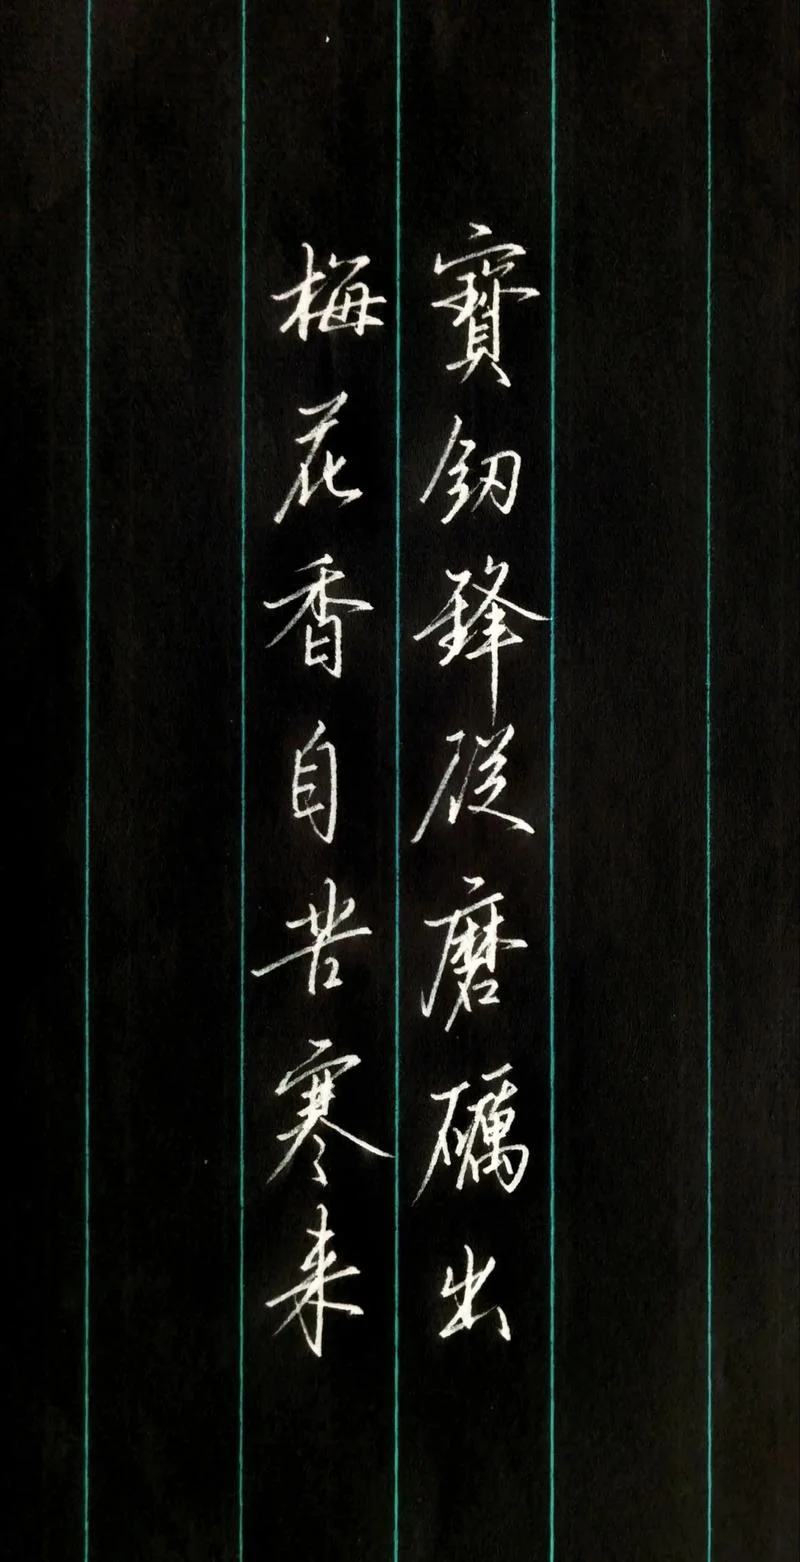 寶釼鋒從磨礪出
梅花香自苦寒来